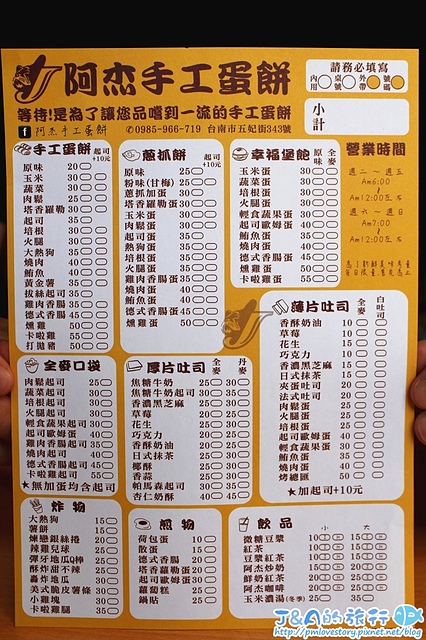 阿杰手工蛋餅
等待!是為了讓您品嚐到一流的手工蛋餅
阿杰手工蛋餅 ✆0985-966-719 台南市五妃街343號
請務必填寫
內用 桌號 外帶 號碼
小計
營業時間
週二～週五
Am6:00
Am12:00左右
週六～週日
Am7:00
Am12:00左右
手工蛋餅 起司+10元
原味 20
玉米 30
蔬菜 30
肉鬆 30
塔香蘿勒 30
起司 30
培根 30
火腿 30
大熱狗 35
燒肉 40
鮪魚 40
黃金薯 35
拔絲起司 35
雞肉香腸 35
德式香腸 45
燻雞 50
卡啦雞 55
打拋豬 50
蔥抓餅 起司+10元
原味 25
粉味(甘梅) 25
蔥抓加蛋 30
塔香蘿勒蛋 30
玉米蛋 30
肉鬆蛋 30
起司蛋 30
熱狗蛋 30
培根蛋 30
火腿蛋 30
雞肉香腸蛋 35
燒肉蛋 40
鮪魚蛋 40
德式香腸蛋 45
燻雞蛋 50
幸福堡飽 原味 全麥
玉米蛋 30
蔬菜蛋 30
肉鬆蛋 30
培根蛋 30
火腿蛋 30
輕食蔬果蛋 30
起司歐姆蛋 40
燒肉蛋 40
鮪魚蛋 40
德式香腸蛋 45
燻雞蛋 50
卡啦雞蛋 55
薄片吐司 全麥 白吐司
香酥奶油 10
草莓 10
花生 10
巧克力 10
香濃黑芝麻 15
日式抹茶 15
夾蛋吐司 20
法式吐司 20
肉鬆蛋 25
火腿蛋 25
培根蛋 25
起司歐姆蛋 30
輕食蔬果蛋 30
鮪魚蛋 35
燒肉蛋 30
烤總匯 50
★加起司+10元
全麥口袋
肉鬆起司 25
蔬菜起司 30
培根起司 30
火腿起司 30
輕食蔬果起司 30
起司歐姆蛋 30
雞肉香腸起司 35
燒肉起司 40
德式香腸起司 45
卡啦雞起司 55
★無加蛋均含起司
厚片吐司 全麥 丹麥
焦糖牛奶 25 30
焦糖牛奶起司 30 35
香濃黑芝麻 25 30
草莓 20 25
花生 20 25
巧克力 20 25
香酥奶油 20 25
日式抹茶 25 30
椰酥 25 30
香蒜 25 30
帕馬森起司 25 30
杏仁奶酥 40 45
炸物
大熱狗 15
薯餅 15
煉戀銀絲捲 20
辣雞兒球 25
彈牙地瓜Q棒 25
酥炸甜不辣 25
轟炸地瓜 30
美式脆皮薯條 30
小雞塊 30
卡啦雞腿 35
煎物
荷包蛋 10
散蛋 15
德式香腸 20
塔香蘿勒蛋 20
起司歐姆蛋 20
蘿蔔糕 25
鍋貼 25
飲品 小 大
微糖豆漿 10 15
紅茶 10 15
豆漿紅茶 10 15
阿杰炒奶 15 20
鮮奶紅茶 15 20
阿杰咖啡 20 25
玉米濃湯(冬季) 25 35
J&A的旅行
http://pmlovestory.pixnet.net/blog